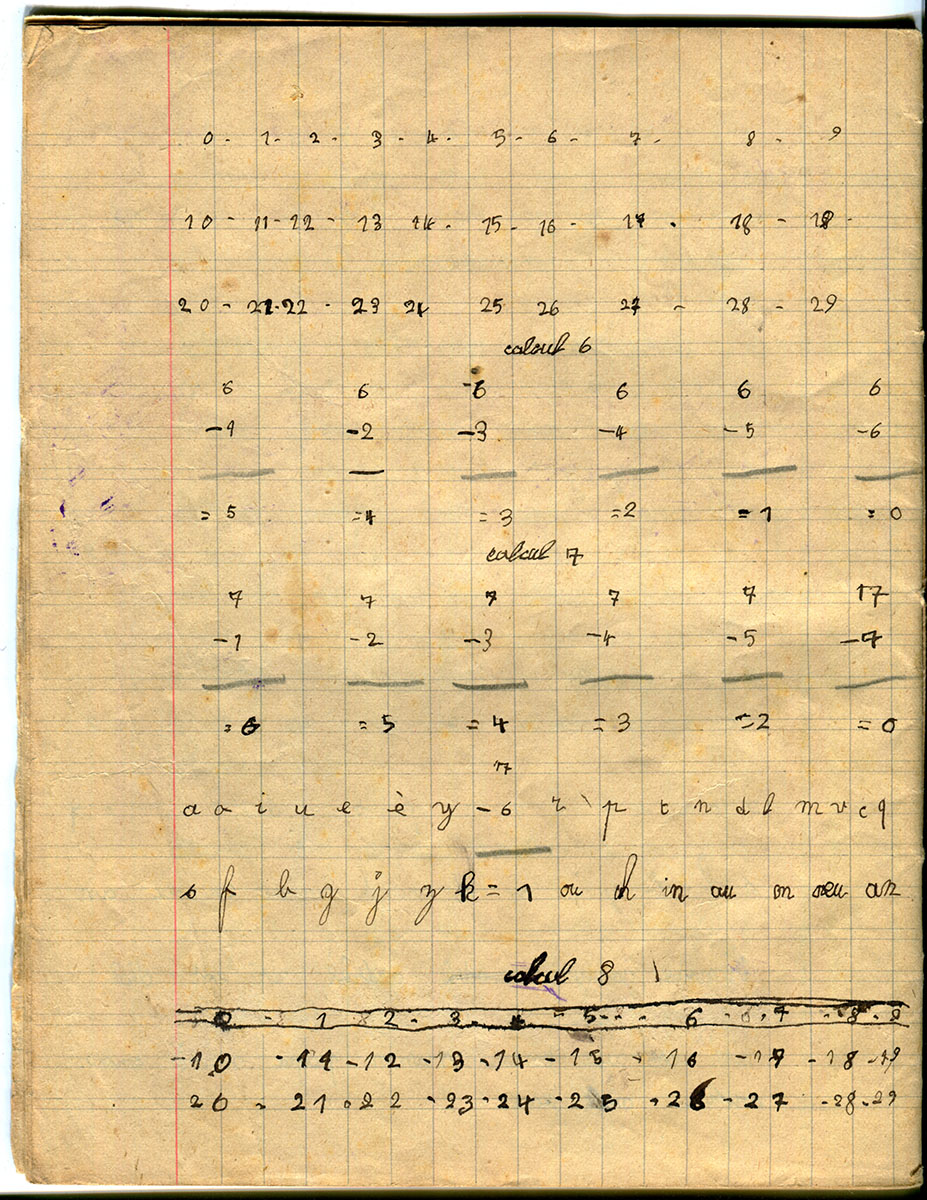 0 - 1 - 2 - 3 - 4 - 5 - 6 - 7 - 8 - 9
10 - 11 - 12 - 13 14 - 15 - 16 - 17 - 18 - 19 -
20 - 21 - 22 - 23 24 25 26 27 - 28 - 29
calcul 6
6 6 6 6 6 6
-1 -2 -3 -4 -5 -6
= 5 =4 = 3 =2 =1 = 0
calcul 7
7 7 7 7 7 17
-1 -2 -3 -4 -5 -7
= 6 = 5 = 4 = 3 =2 = 0
7
a o i u e é y - 6 r p t n d l m v c q
s f b g j z k = 1 ou ch in au on eu an
calcul 8 1
0 - 1 2 - 3 - 4 - 5 - - 6 - 7 - 8 - 9
-10 - 11 - 12 - 13 - 14 - 15 - 16 - 17 - 18 - 19
20 - 21 - 22 - 23 - 24 - 25 - 26 - 27 - 28 - 29